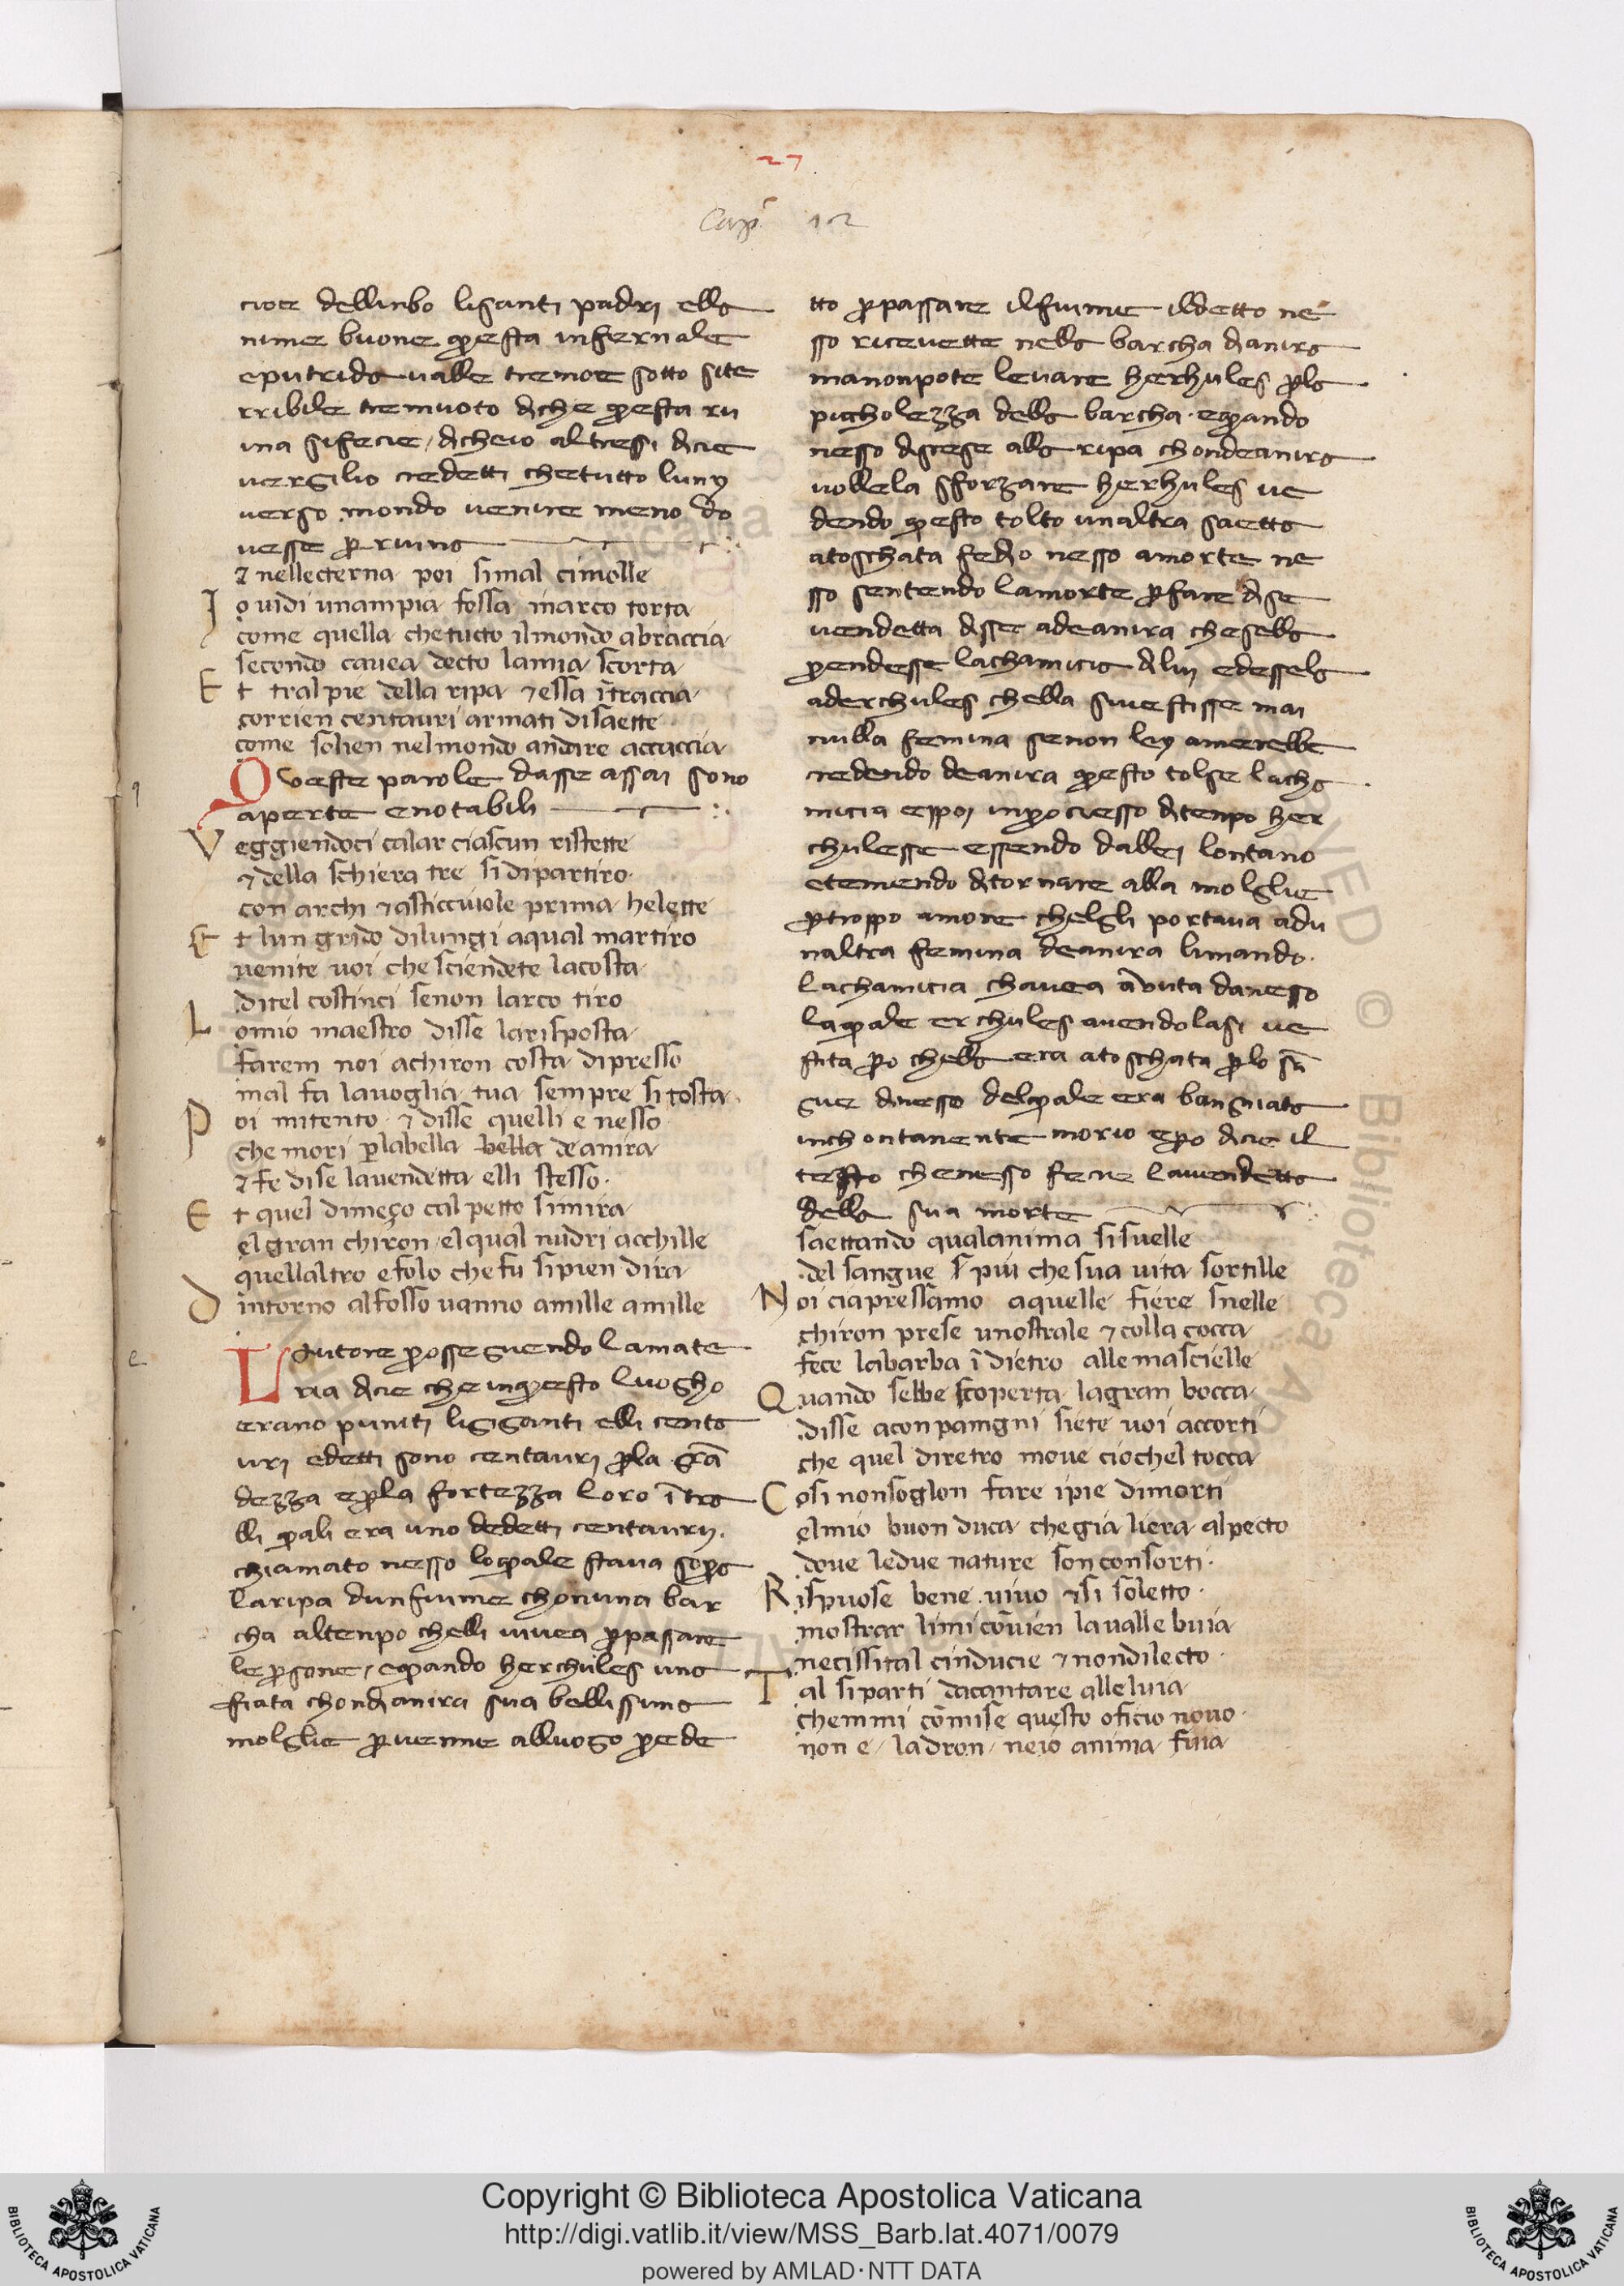 27
Cap. 12
cioe dellinbo li santi padri ella
nime buone questa infernale
e putrida ualle tremoe sotto si te
rribile tremuoto di che questa ru
ina si fecie / di cheio altresi dicie
uergilio credetti che tutto luny
uerso mondo uenire meno do
uesse per ruina
⁊ nellecterna poi simal cimolle
Io uidi unampia fossa inarco torta
come quella chetucto ilmondo abraccia
secondo cauea decto lamia scorta
Et tralpie della ripa ⁊ essa ītraccia
corrien centauri armati disaette
come solien nelmondo andare accaccia
Queste parole dasse assai sono
aperte e notabili
Veggiendoci calar ciascun ristette
⁊ della schiera tre sidipartiro
con archi ⁊ asticciuole prima helette
Et lun grido dilungi aqual martiro
uenite uoi che sciendete lacosta
ditel costinci senon larco tiro
Lo mio maestro disse larisposta
farem noi achiron costa dipresso
mal fu lauoglia tua sempre si tosta
Poi mitento ⁊ disse quelli e nesso
che mori per labella bella deanira
⁊ fe dise lauendetta elli stesso
Et quel dimeço cal petto simira
el gran chiron elqual nudri acchille
quellaltro e folo che fu sipien dira
Dintorno alfosso uanno amille amille
Lautore prosseguendo la mate
ria dicie che inquesto luogho
erano puniti li giganti elli centa
uri e detti sono centauri per la grā
dezza e per la fortezza loro ītra
lli quali era uno dedetti centaurij
chiamato nesso lo quale staua sopra
la ripa dun fiume chonuna bar
cha altenpo chelli uiuea per passare
le persone / e quando herchules una
fiata chondianira sua bellissima
molglie peruenne alluogo prede
tto per passare il fiume il detto ne
sso riceuette nella barcha dianira
ma non pote leuare herhules per la
picholezza della barcha · e quando
nesso discese alla ripa chondeanira
uollela sforzare herhules ue
dendo questo tolto unaltra saetta
atoschata fedio nesso a morte ne
sso sentendo la morte per fare di se
uendetta disse a deanira che sella
prendesse la chamicia di lui e dessela
ad erchules chella si uestisse mai
nulla femina se non ley amerebbe
credendo deanira questo tolse la cha
micia e ppoi in prociesso di tenpo her
chulesse essendo dallei lontano
e temendo di tornare alla molglie
per troppo amore chelgli portaua adu
naltra femina deanira li mando
la chamicia chauea auuta da nesso
la quale erchules auendolasi ue
stita pero chella era atoschata per lo sā
gue di nesso del quale era bangniata
inchontanente morio e pero dicie il
testo che nesso fecie la uendetta
della sua morte
saettando qualanima si suelle
del sangue piu che sua uita sortille
Noi ciapressamo aquelle fiere snelle
chiron prese unostrale ⁊ colla cocca
fece labarba ī dietro allemascielle
Quando sebbe scoperta lagran bocca
disse aconpaingni siete uoi accorti
che quel diretro moue ciochel tocca
Cosi nonsoglon fare ipie dimorti
elmio buon duca chegia liera alpecto
doue ledue nature son consorti
Rispuose bene uiuo ⁊ si soletto
mostrar limi cōuien laualle buia
necissital cinducie ⁊ nondilecto
Tal siparti dacantare alleluia
chemmi cōmise questo oficio nouo
non e / ladron / neio anima fuia
Copyright © Biblioteca Apostolica Vaticana
http://digi.vatlib.it/view/MSS_Barb.lat.4071/0079
powered by AMLAD·NTT DATA
BIBLIOTECA APOSTOLICA VATICANA
BIBLIOTECA APOSTOLICA VATICANA